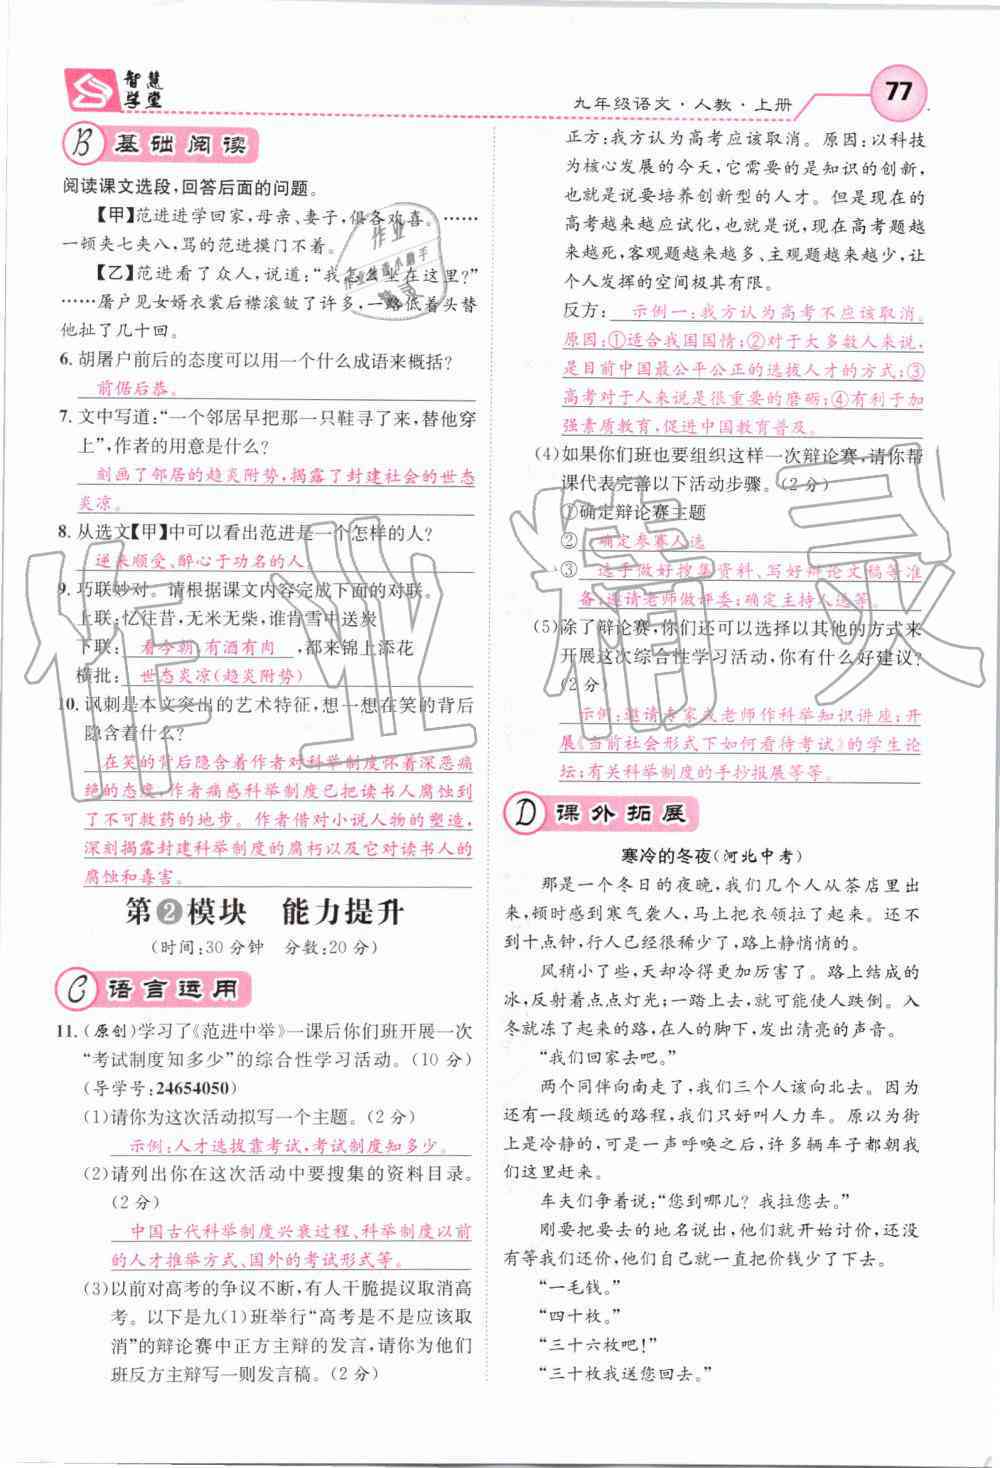 智慧学堂
九年级语文·人教·上册
77
B 基础阅读
阅读课文选段,回答后面的问题。
【甲】范进进学回家,母亲、妻子,俱各欢喜。……
一顿夹七夹八,骂的范进摸门不着。
【乙】范进看了众人,说道:“我怎么坐在这里?”
……屠户见女婿衣裳后襟滚皱了许多,一路低着头替
他扯了几十回。
6. 胡屠户前后的态度可以用一个什么成语来概括?
前倨后恭。
7. 文中写道:“一个邻居早把那一只鞋寻了来,替他穿
上”,作者的用意是什么?
刻画了邻居的趋炎附势,揭露了封建社会的世态
炎凉。
8. 从选文【甲】中可以看出范进是一个怎样的人?
逆来顺受、醉心于功名的人
9. 巧联妙对。请根据课文内容完成下面的对联。
上联:忆往昔,无米无柴,谁肯雪中送炭
下联: 看今朝,有酒有肉 ,都来锦上添花
横批: 世态炎凉(趋炎附势)
10. 讽刺是本文突出的艺术特征,想一想在笑的背后
隐含着什么?
在笑的背后隐含着作者对科举制度怀着深恶痛
绝的态度,作者痛感科举制度已把读书人腐蚀到
了不可救药的地步。作者借对小说人物的塑造,
深刻揭露封建科举制度的腐朽以及它对读书人的
腐蚀和毒害。
第2模块 能力提升
(时间:30分钟 分数:20分)
C 语言运用
11. (原创)学习了《范进中举》一课后你们班开展一次
“考试制度知多少”的综合性学习活动。(10分)
(导学号:24654050)
(1)请你为这次活动拟写一个主题。(2分)
示例:人才选拔靠考试,考试制度知多少。
(2)请列出你在这次活动中要搜集的资料目录。
(2分)
中国古代科举制度兴衰过程、科举制度以前
的人才推举方式、国外的考试形式等。
(3)以前对高考的争议不断,有人干脆提议取消高
考。以下是九(1)班举行“高考是不是应该取
消”的辩论赛中正方主辩的发言,请你为他们
班反方主辩写一则发言稿。(2分)
正方:我方认为高考应该取消。原因:以科技
为核心发展的今天,它需要的是知识的创新,
也就是说要培养创新型的人才。但是现在的
高考越来越应试化,也就是说,现在高考题越
来越死,客观题越来越多、主观题越来越少,让
个人发挥的空间极其有限。
反方: 示例一:我方认为高考不应该取消。
原因:①适合我国国情;②对于大多数人来说,
是目前中国最公平公正的选拔人才的方式;③
高考对于人来说是很重要的磨砺;④有利于加
强素质教育,促进中国教育普及。
(4)如果你们班也要组织这样一次辩论赛,请你帮
课代表完善以下活动步骤。(2分)
①确定辩论赛主题
② 确定参赛人选
③ 选手做好搜集资料、写好辩论文稿等准
备;邀请老师做评委;确定主持人选等。
(5)除了辩论赛,你们还可以选择以其他的方式来
开展这次综合性学习活动,你有什么好建议?
(2分)
示例:邀请专家或老师作科举知识讲座;开
展《当前社会形式下如何看待考试》的学生论
坛;有关科举制度的手抄报展等等。
D 课外拓展
寒冷的冬夜(河北中考)
那是一个冬日的夜晚,我们几个人从茶店里出
来,顿时感到寒气袭人,马上把领子拉了起来。还不
到十点钟,行人已经很少了,路上静悄悄的。
风稍小了些,天却冷得更加厉害了。路上结成的
冰,反射着点点灯光;一不小心,就会使人跌倒。入
冬就冻了起来的路,在人的脚下,发出清亮的声音。
“我们回家去吧。”
两个同伴向南走了,我们三个人该向北去。因为
还有一段颇远的路程,我们只好叫人力车。原以为街
上是冷静的,可是一声呼唤之后,许多辆车子都朝我
们这里赶来。
车夫们争着说:“您到哪儿?我拉您去。”
刚要把要去的地名说出,他们就开始讨价,还没
有等我们还价,他们自己就一直把价钱少了下去。
“一毛钱。”
“四十枚。”
“三十六枚吧!”
“三十枚我送您回去。”
作业精灵